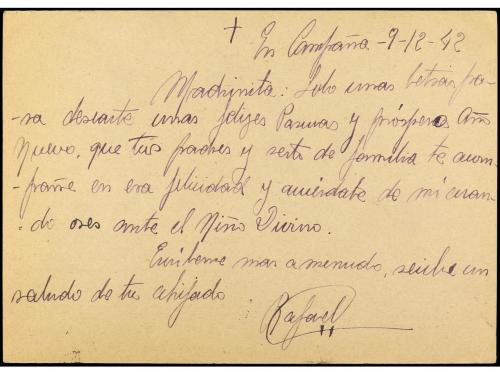 + En Campaña - 9-12-42
Madrinita: Solo unas letras pa-
-ra desearte unas felizes Pascuas y próspero Año
Nuevo, que tus padres y resto de familia te acom-
-pañe en esa felicidad y acuérdate de mi cuan-
-do ores ante el Niño Divino.
Escribeme mas a menudo, recibe un
saludo de tu ahijado
Rafael